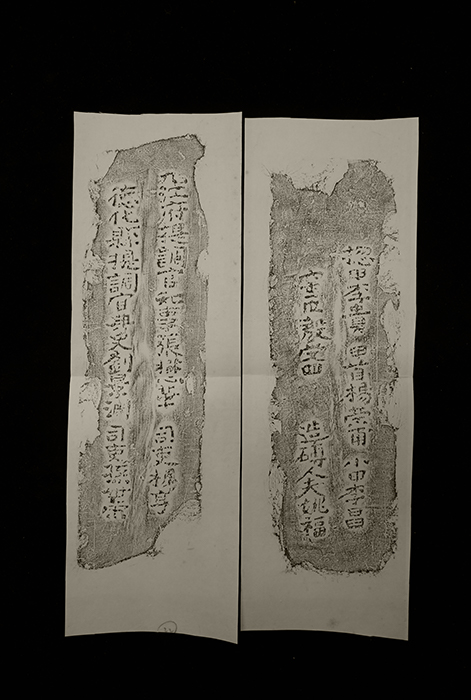 九江府提調官知事張 司吏楊亨
德化縣提調官典史劉景渊 司吏孫
揔甲李 甲首楊榮甫 小甲李昌
窑匠殷 造磚人夫姚福